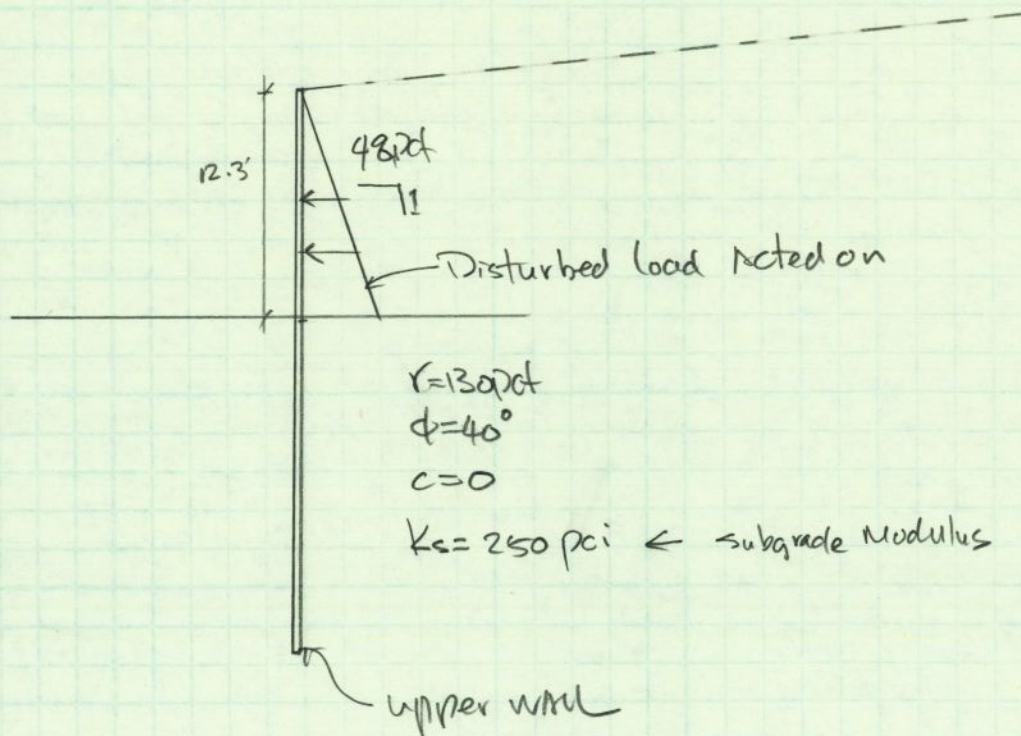 12.3'
48pcf
1
Disturbed load Acted on
γ=130pcf
φ=40°
c=0
Ks= 250 pci ← subgrade Modulus
upper WALL